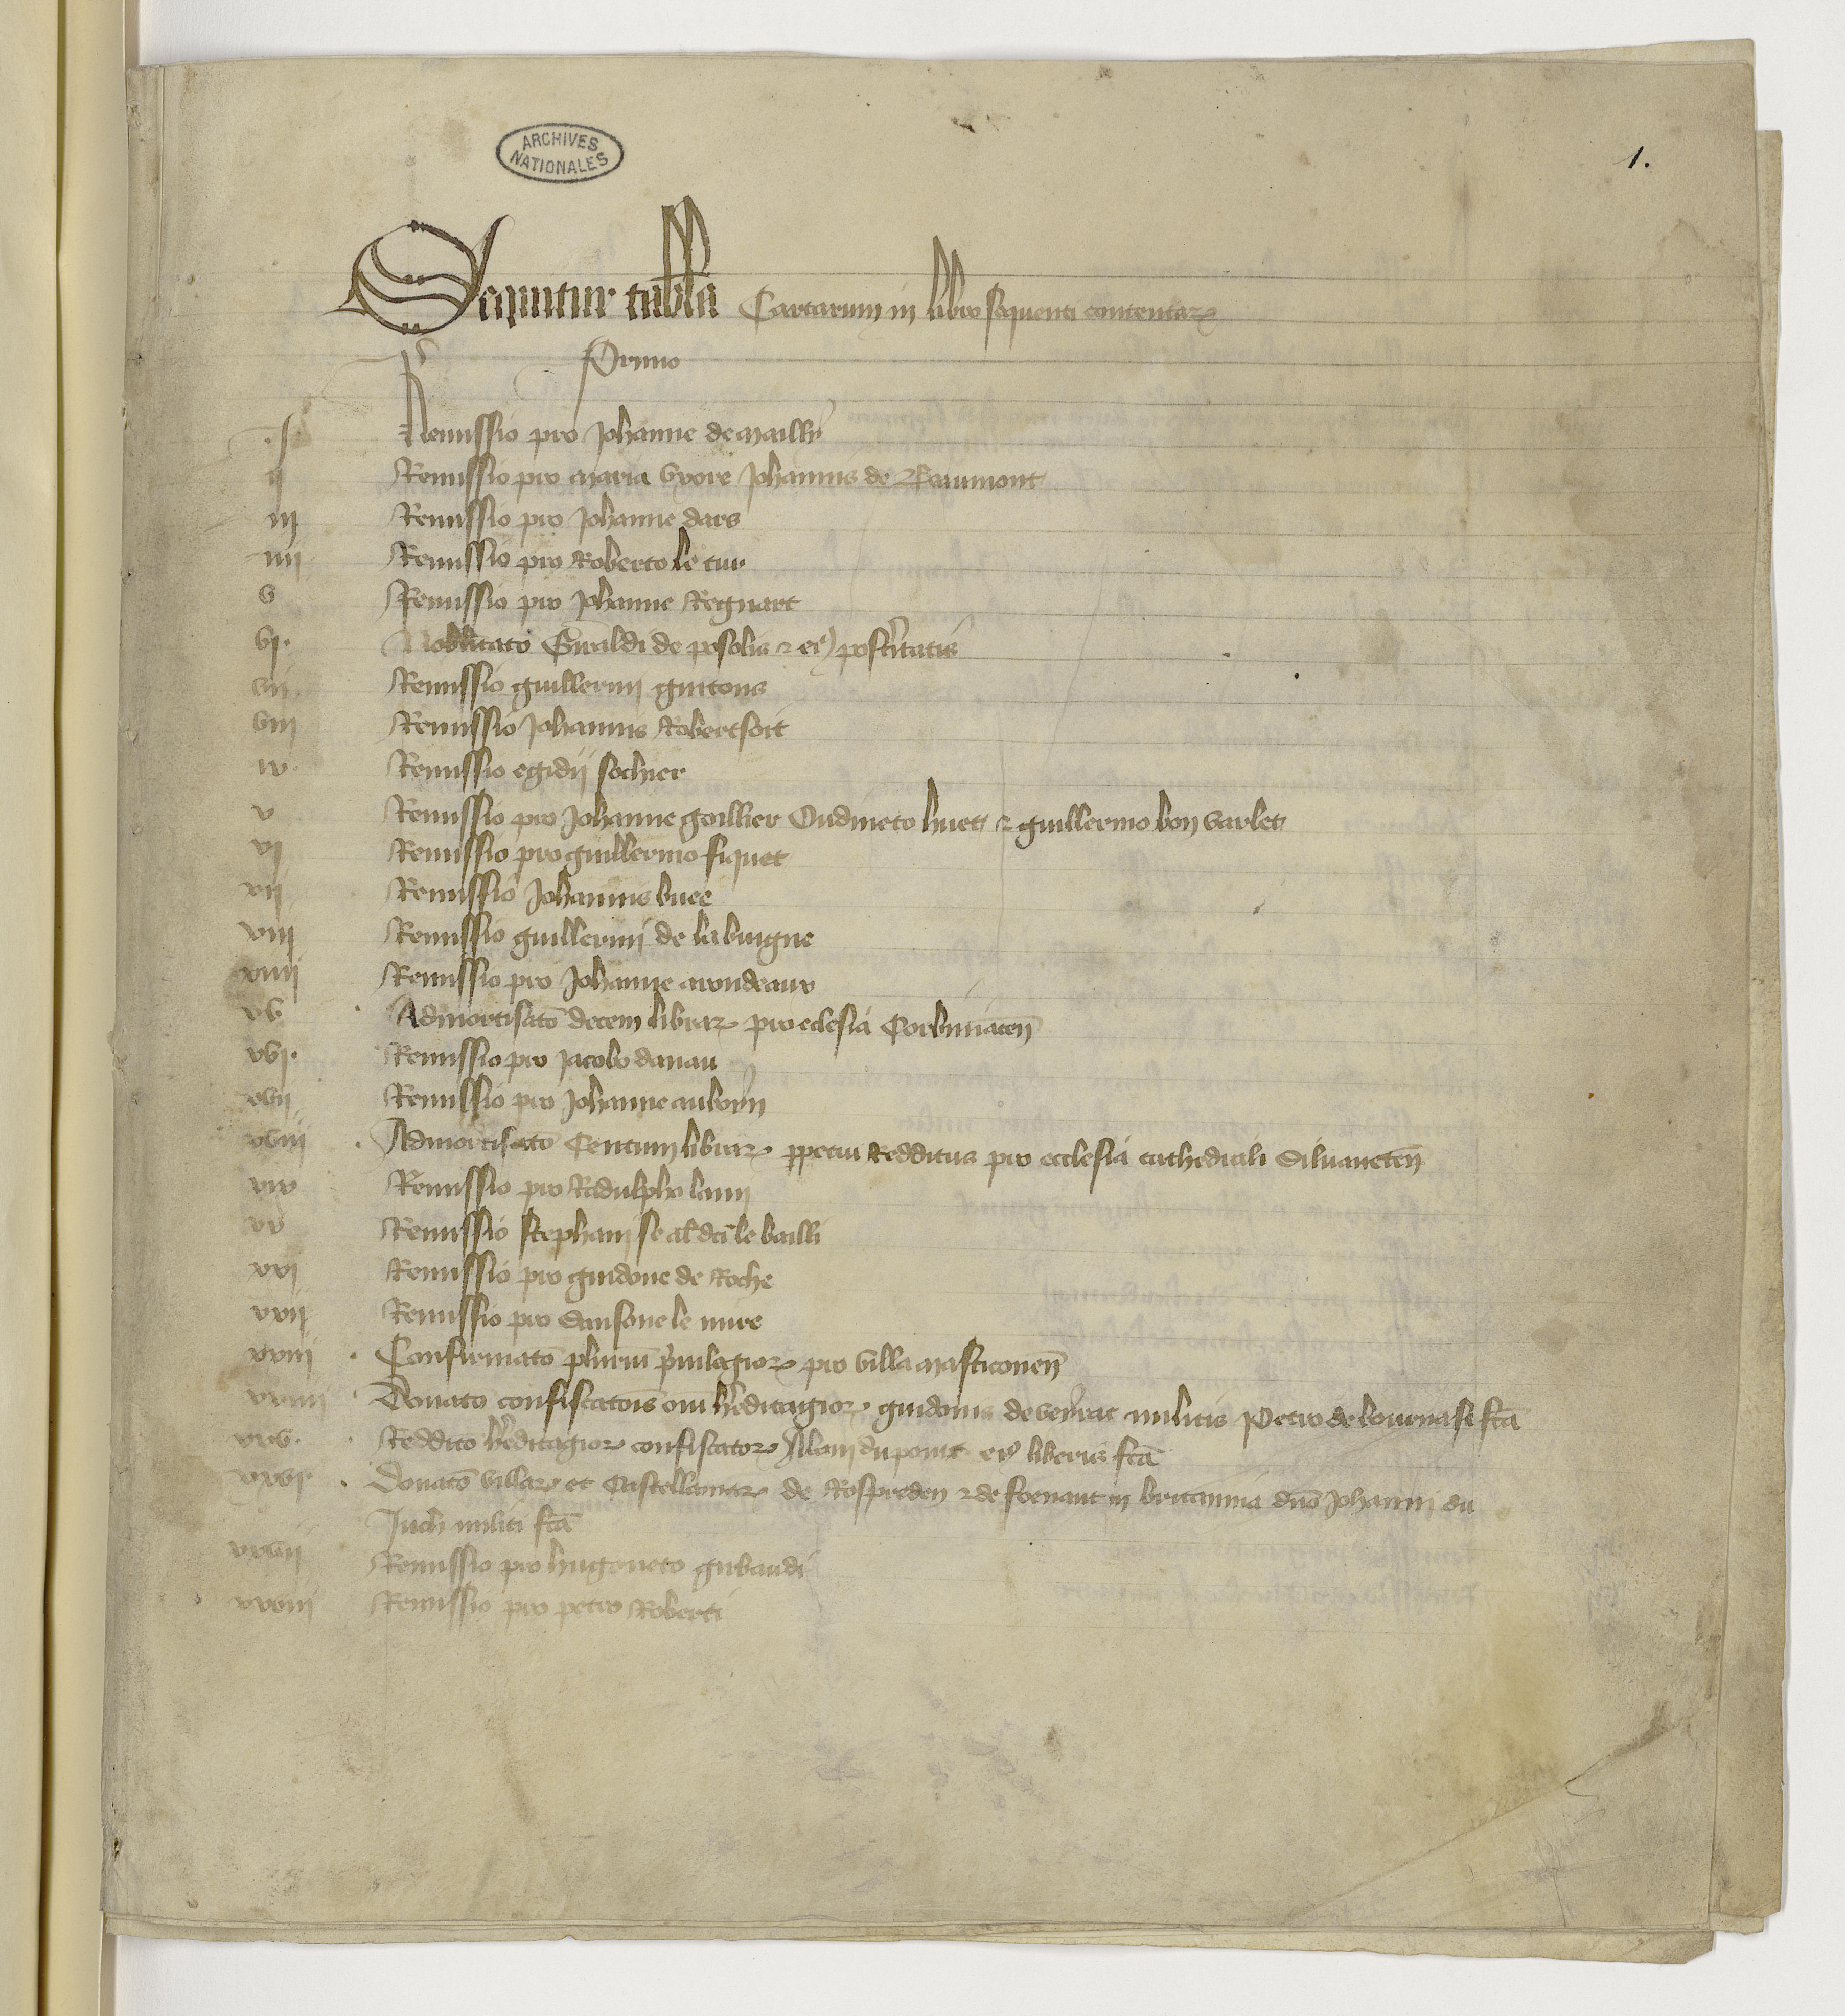 ARCHIVES
NATIONALES
1.
Sequitur tabla Cartarum in libro sequenti contentaꝝ
Primo
.i. Remissio pro Johanne de Mailly
ii Remissio pro Maria uxore Johannis de Beaumont
iij Remissio pro Johanne dars
iiij Remissio pro Roberto le
v Remissio pro Johanne Regnart
vj. Nobilitatō Giraldi de posolis ⁊ eiꝰ post'itatis
vii Remissio guillermi guitons
viij Remissio Johannis Robertsoit
ix. Remissio egidij sochier
x Remissio pro Johanne goillier Oudineto huet ⁊ guillermo bon varlet
xj Remissio pro guillermo fiquet
xij Remissio Johannis buee
xiij Remissio guillermi de la buigne
xiiij Remissio pro Johanne arondeaux
xv Admortisatō decem libraꝝ pro eclesia Corbiniaceñ
xvj. Remissio pro Jacobo danau
xvij Remissio pro Johanne auboyn
xviij Admortisatō Centum libraꝝ ꝑpetui Redditus pro ecclesia cathedrali Silvaneteñ
xix Remissio pro Radulpho
xx Remissio Stephani al' dc̄i le bailli
xxj Remissio pro guidone de Roche
xxij Remissio pro Sansone le mire
xxiij Confirmatō pluriū p'vilegioꝝ pro villa Masticoneñ
xxiiij Donato confiscatōis oīu h'editagioꝝ guidonis de militis Petro de fc̄a
xxv. Redditō h'editagioꝝ confiscatoꝝ Alani du pont eiꝰ liberis fc̄a
xxvj. Donatō villaꝝ et Castellaniaꝝ de Rospreden ⁊ de foenant in britannia dn̄o Johanni du
Juch militi fc̄a
xxvij Remissio pro hugoneto gibaudi
xxviij Remissio pro petro Roberti